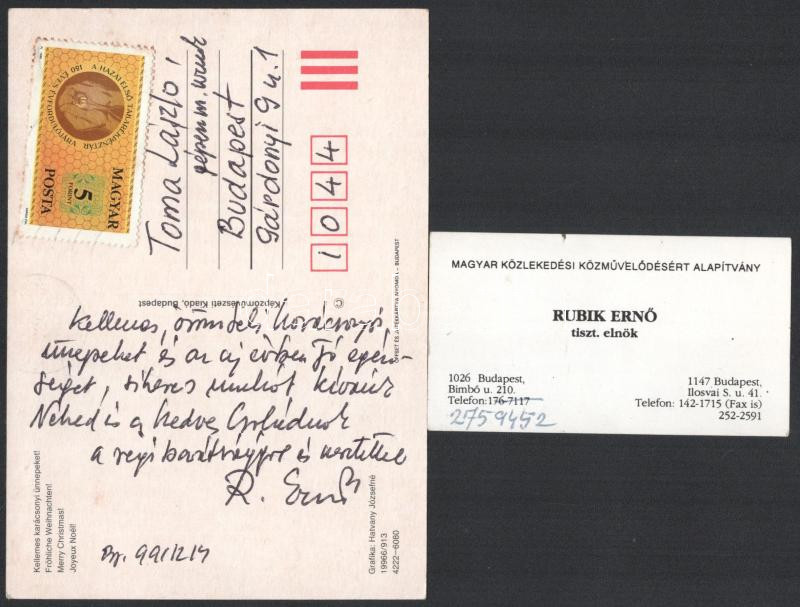 A HAZAI ELSŐ TAKARÉKPÉNZTÁR
150 ÉVES ÉVFORDULÓJÁRA
5
FORINT
MAGYAR
POSTA
Toma László
gépészm. úrnak
Budapest
Gárdonyi G u. 1
1044
© Képzőművészeti Kiadó, Budapest
OFFSET ÉS JÁTÉKKÁRTYA NYOMDA - BUDAPEST
Kellemes, örömteli karácsonyi
ünnepeket és az új évben jó egész-
séget, sikeres munkát kívánok
Neked és a kedves Családnak
a régi barátsággal és tisztelettel
R. Ernő
Bp. 99/12/14
Kellemes karácsonyi ünnepeket!
Fröhliche Weihnachten!
Merry Christmas!
Joyeux Noël!
Grafika: Hatvany Józsefné
19966/913
4222-6080
MAGYAR KÖZLEKEDÉSI KÖZMŰVELŐDÉSÉRT ALAPÍTVÁNY
RUBIK ERNŐ
tiszt. elnök
1026 Budapest,
Bimbó u. 210.
Telefon: 176-7117
2759452
1147 Budapest,
Ilosvai S. u. 41.
Telefon: 142-1715 (Fax is)
252-2591